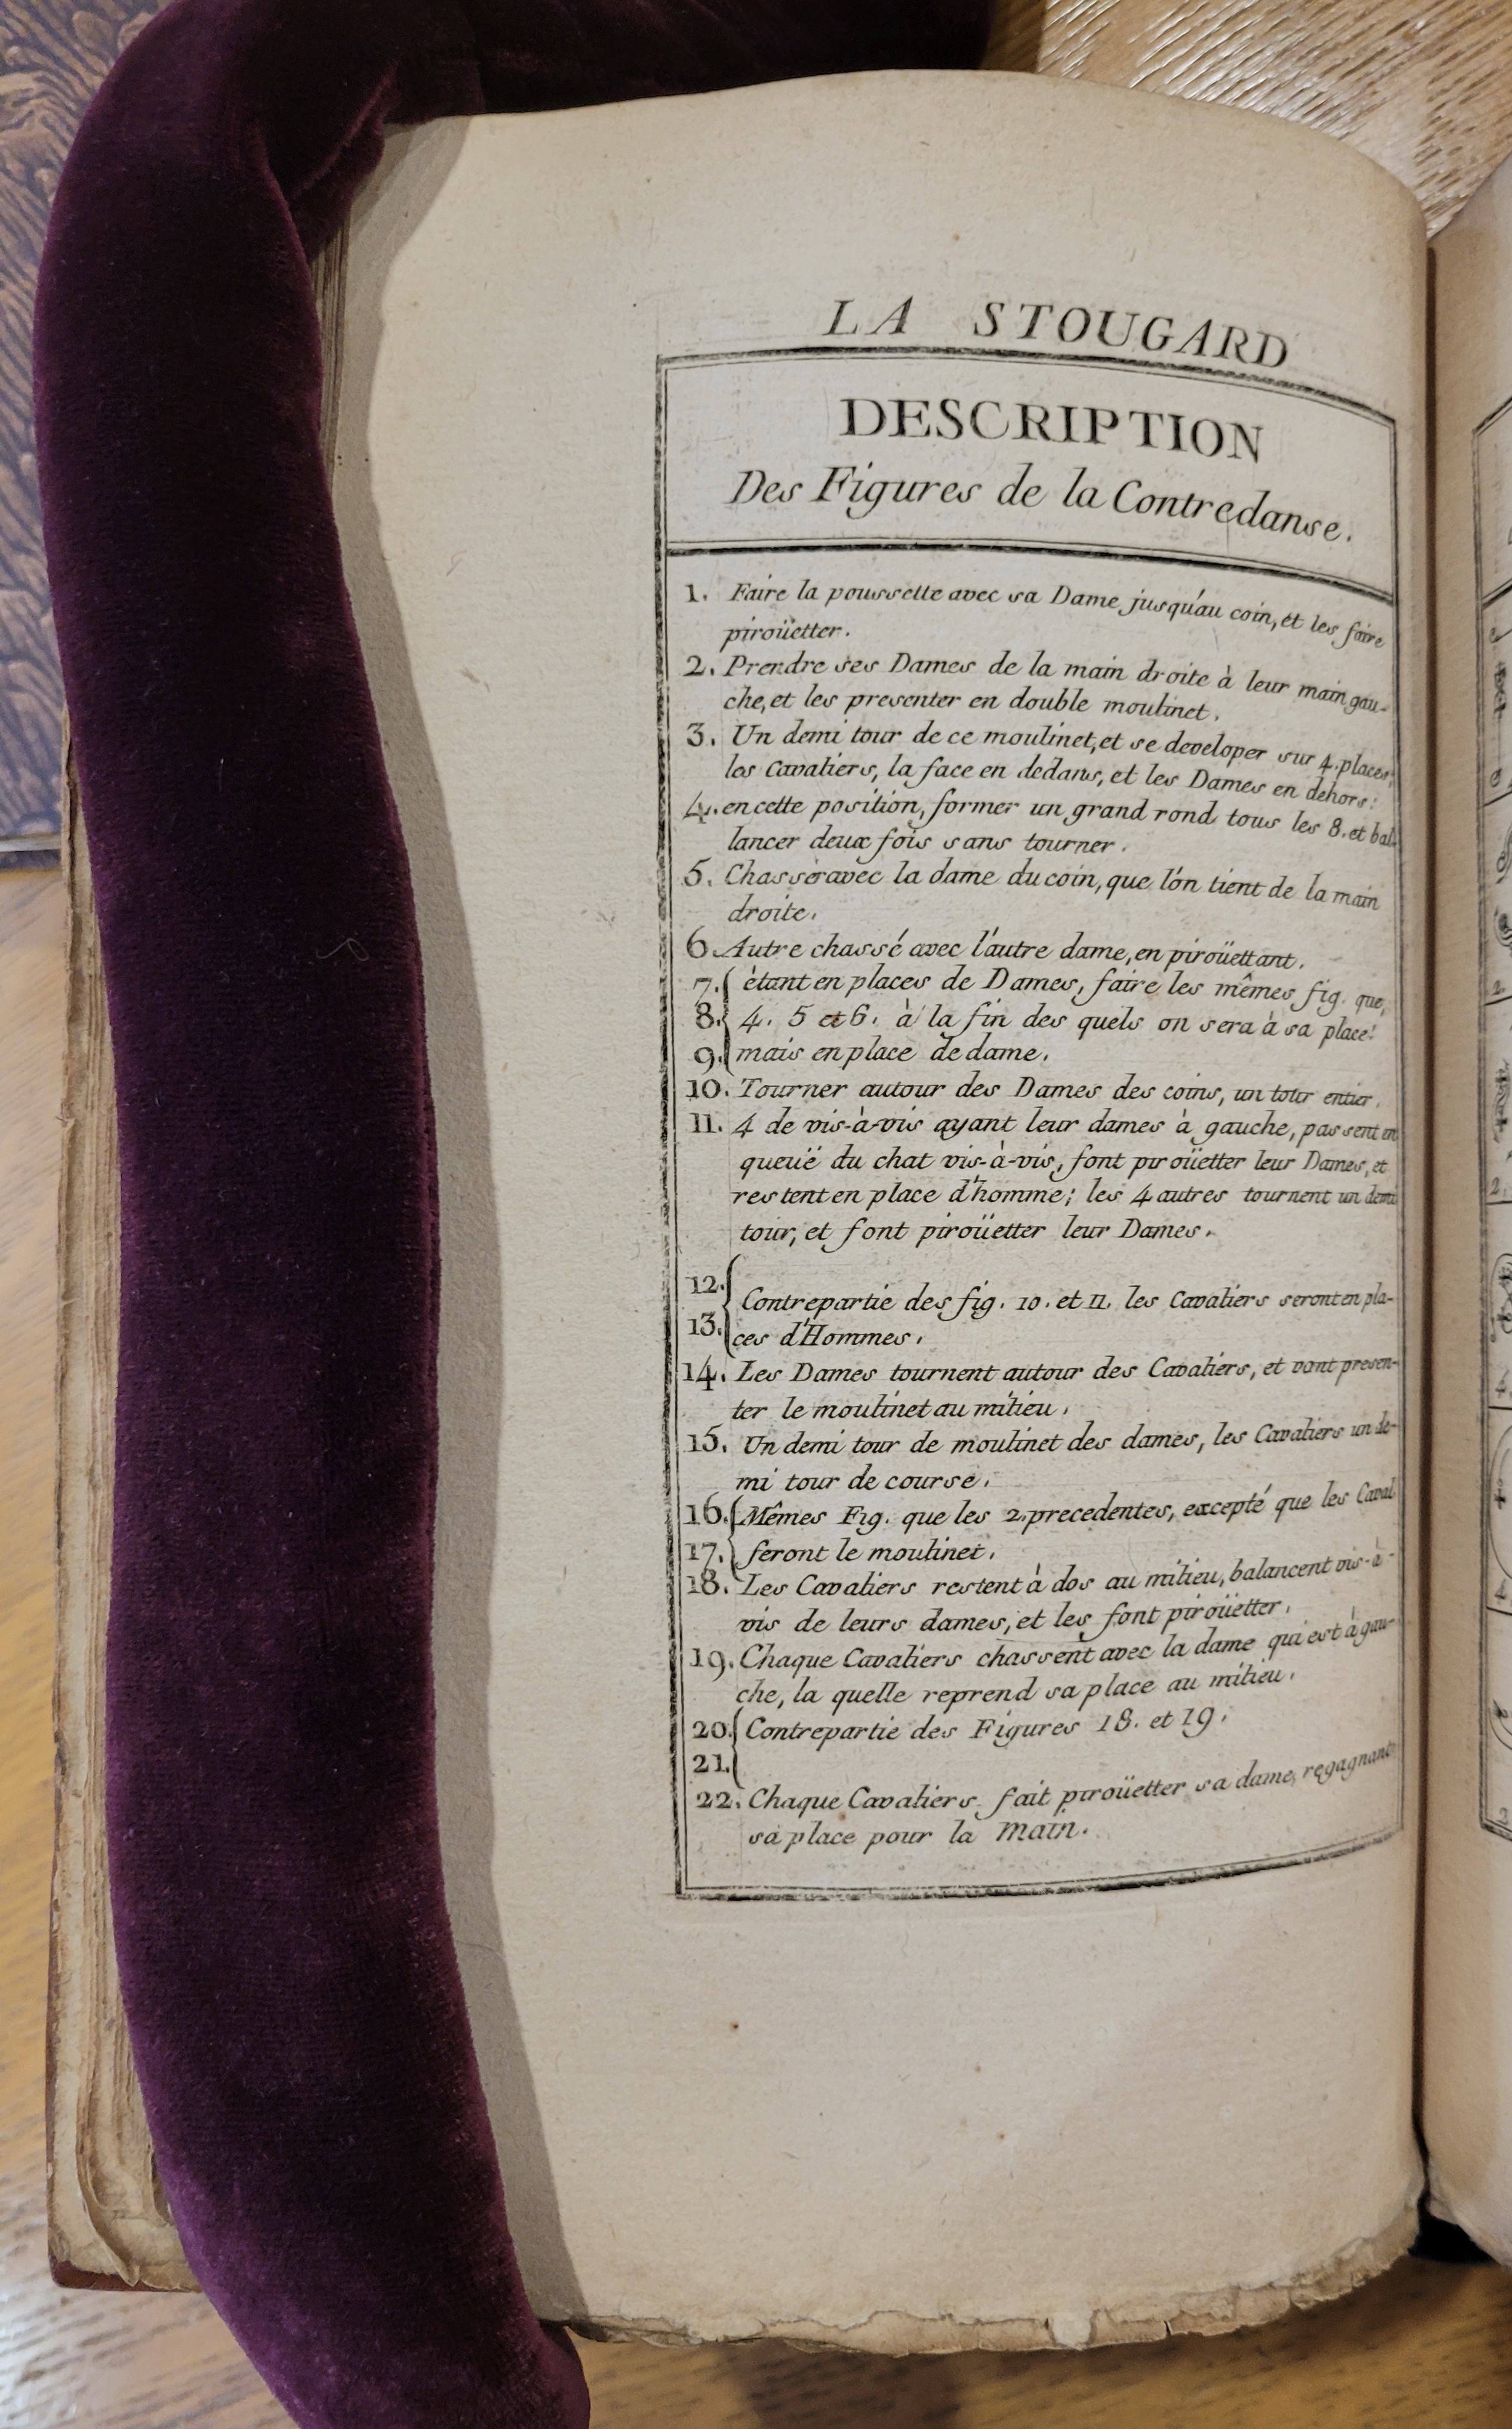 LA STOUGARD
DESCRIPTION
Des Figures de la Contredanse.
1. Faire la poussette avec sa Dame jusqu'au coin, et les faire
piroüetter.
2. Prendre ses Dames de la main droite à leur main gau-
che, et les presenter en double moulinet.
3. Un demi tour de ce moulinet, et se developer sur 4. places,
les Cavaliers, la face en dedans, et les Dames en dehors:
4. en cette position, former un grand rond tous les 8. et bal-
lancer deux fois sans tourner.
5. Chasser avec la dame du coin, que l'on tient de la main
droite.
6. Autre chassé avec l'autre dame, en piroüettant.
7. étant en places de Dames, faire les mêmes fig. que,
8. 4. 5 et 6. à la fin des quels on sera à sa place:
9. mais en place de dame.
10. Tourner autour des Dames des coins, un tour entier.
11. 4 de vis-à-vis ayant leur dames à gauche, passent en
queuë du chat vis-à-vis, font piroüetter leur Dames, et
restent en place d'homme; les 4 autres tournent un demi
tour, et font piroüetter leur Dames.
12. Contrepartie des fig. 10. et 11. les Cavaliers seront en pla-
13. ces d'Hommes.
14. Les Dames tournent autour des Cavaliers, et vont presen-
ter le moulinet au milieu.
15. Un demi tour de moulinet des dames, les Cavaliers un de-
mi tour de course.
16. Mêmes Fig. que les 2. precedentes, excepté que les Caval
17. feront le moulinet.
18. Les Cavaliers restent à dos au milieu, balancent vis-à-
vis de leurs dames, et les font piroüetter.
19. Chaque Cavaliers chassent avec la dame qui est à gau-
che, la quelle reprend sa place au milieu.
20. Contrepartie des Figures 18. et 19.
21.
22. Chaque Cavaliers fait piroüetter sa dame, regagnant
sa place pour la main.